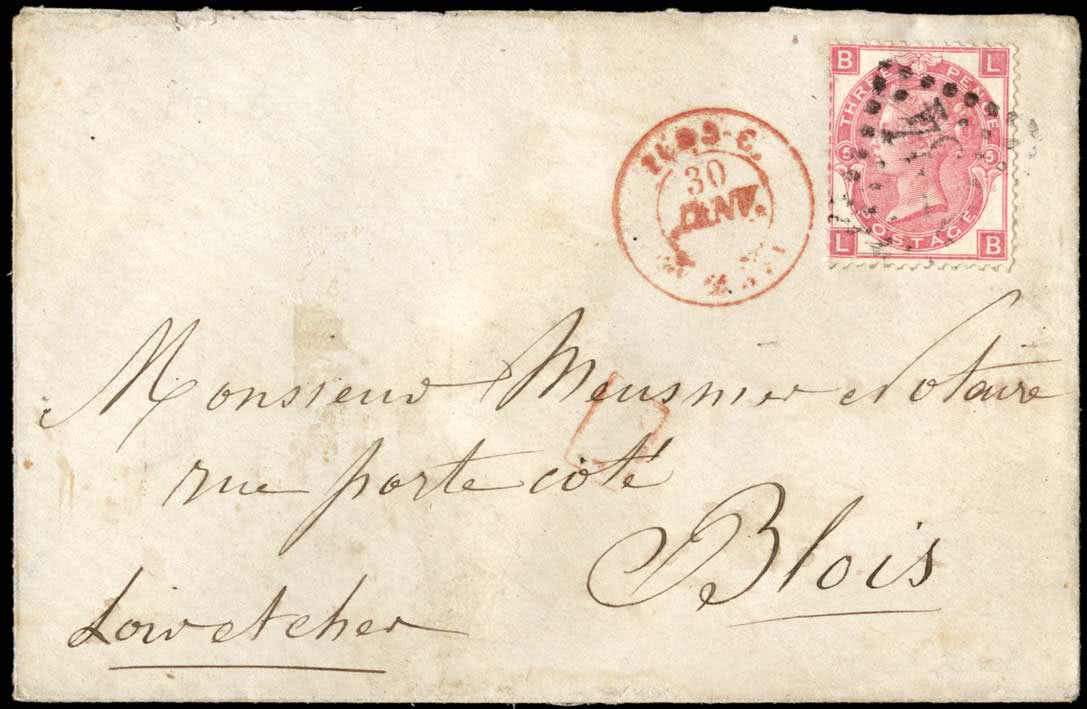 B L
THREE PENCE
5 5
POSTAGE
L B
30
JANV.
Monsieur Meusnier Notaire
rue porte coté
Blois
Loir et cher